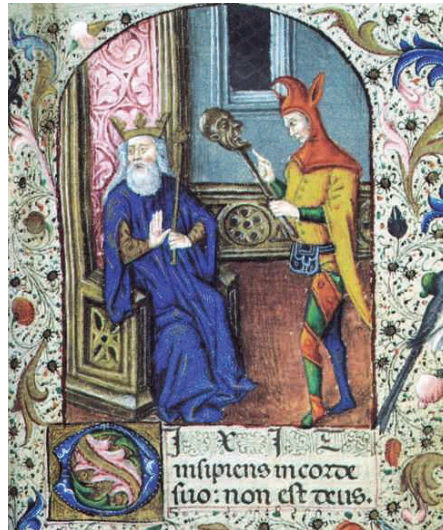 DIXIT
insipiens in corde
suo: non est deus.